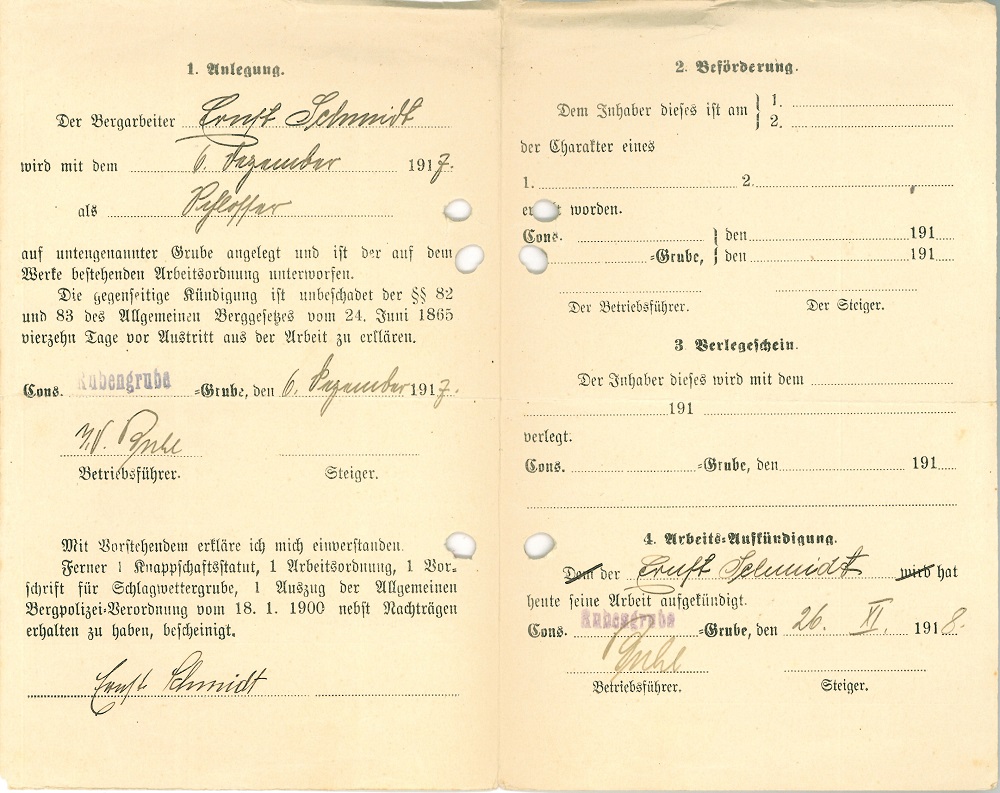 1. Anlegung.
Der Bergarbeiter Ernst Schmidt
wird mit dem 6. Dezember 1917.
als Schlosser
auf untengenannter Grube angelegt und ist der auf dem
Werke bestehenden Arbeitsordnung unterworfen.
Die gegenseitige Kündigung ist unbeschadet der §§ 82
und 83 des Allgemeinen Berggesetzes vom 24. Juni 1865
vierzehn Tage vor Austritt aus der Arbeit zu erklären.
Cons. Rubengrube -Grube, den 6. Dezember 1917.
Betriebsführer. Steiger.
Mit Vorstehendem erkläre ich mich einverstanden.
Ferner 1 Knappschaftsstatut, 1 Arbeitsordnung, 1 Vor-
schrift für Schlagwettergrube, 1 Auszug der Allgemeinen
Bergpolizei-Verordnung vom 18. 1. 1900 nebst Nachträgen
erhalten zu haben, bescheinigt.
Ernst Schmidt
2. Beförderung.
Dem Inhaber dieses ist am 1.
2.
der Charakter eines
1. 2.
worden.
Cons. den 191
-Grube, den 191
Der Betriebsführer. Der Steiger.
3 Verlegeschein.
Der Inhaber dieses wird mit dem
191
verlegt.
Cons. -Grube, den 191
4. Arbeits-Aufkündigung.
Dem der Ernst Schmidt wird hat
heute seine Arbeit aufgekündigt.
Cons. Rubengrube -Grube, den 26. XI. 1918.
Betriebsführer. Steiger.